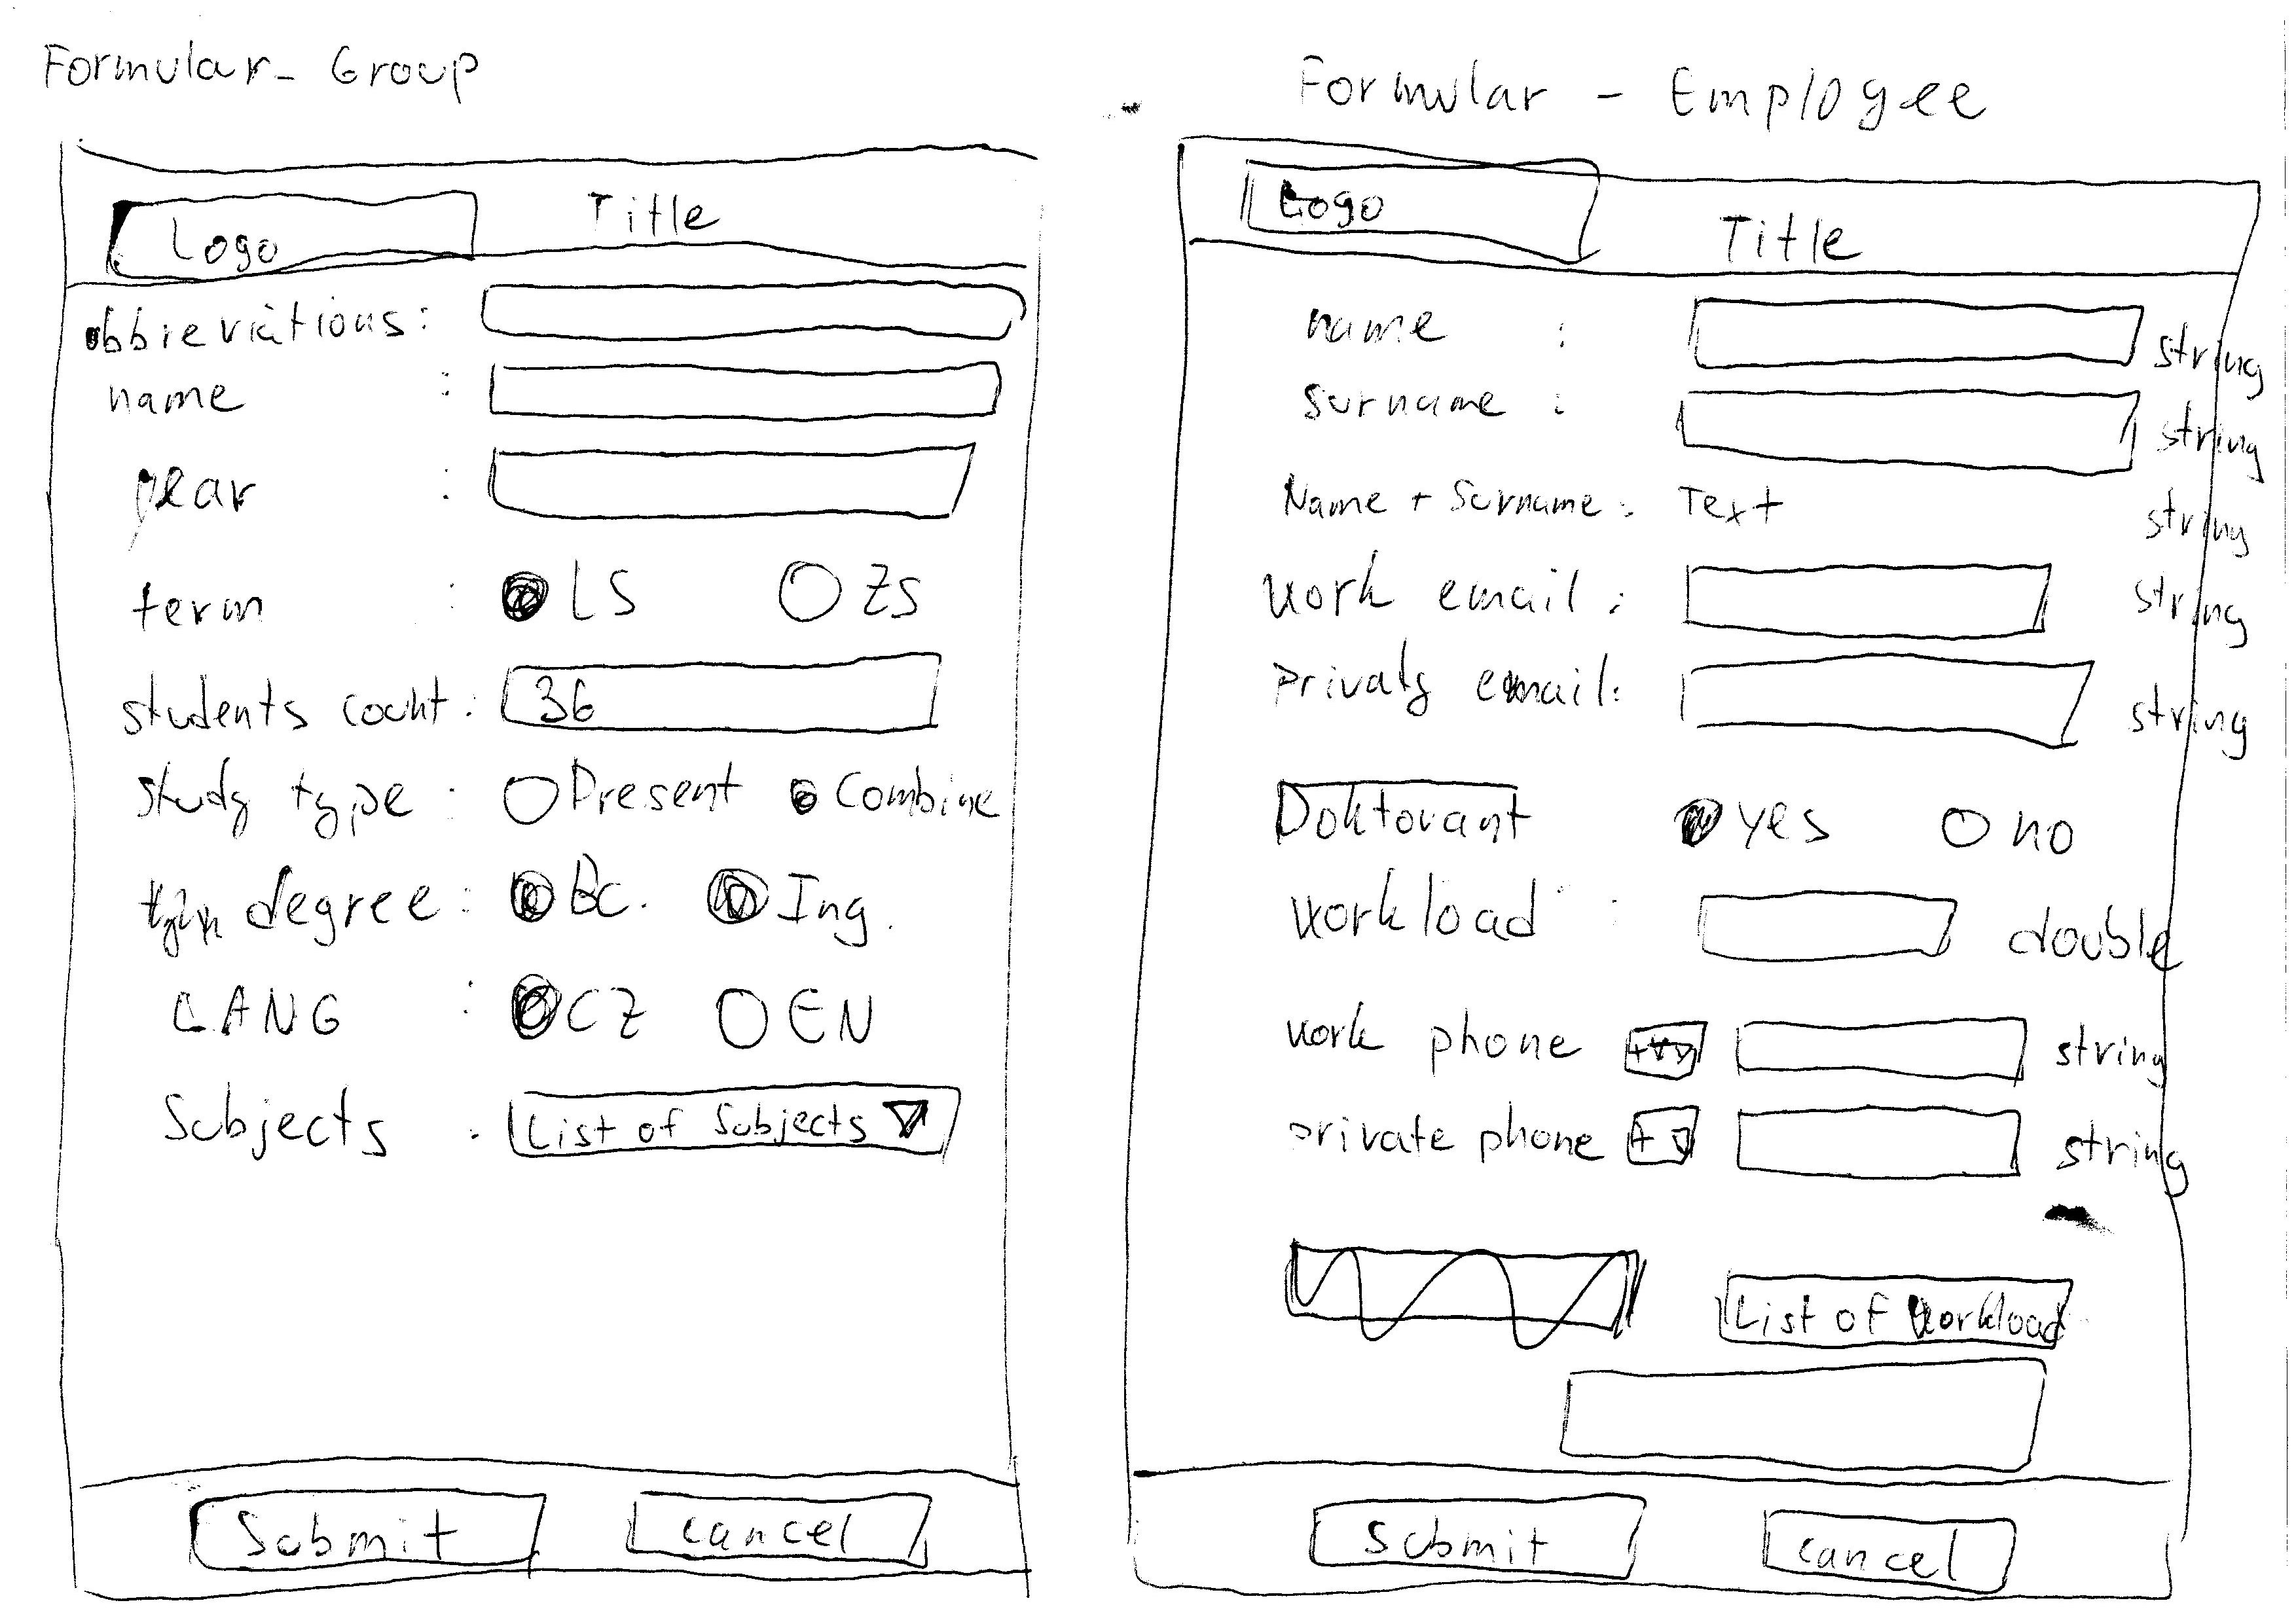 Formular - Group
Logo
Title
abbreviations:
name :
year :
term : LS ZS
students count: 36
study type : Present Combine
degree: Bc. Ing.
LANG : CZ EN
Subjects : List of Subjects
Submit
cancel
Formular - Employee
Logo
Title
name : string
surname : string
Name + Surname: Text string
work email : string
privaty email: string
Doktorant yes no
workload : double
work phone string
private phone + string
List of Workload
Submit
cancel